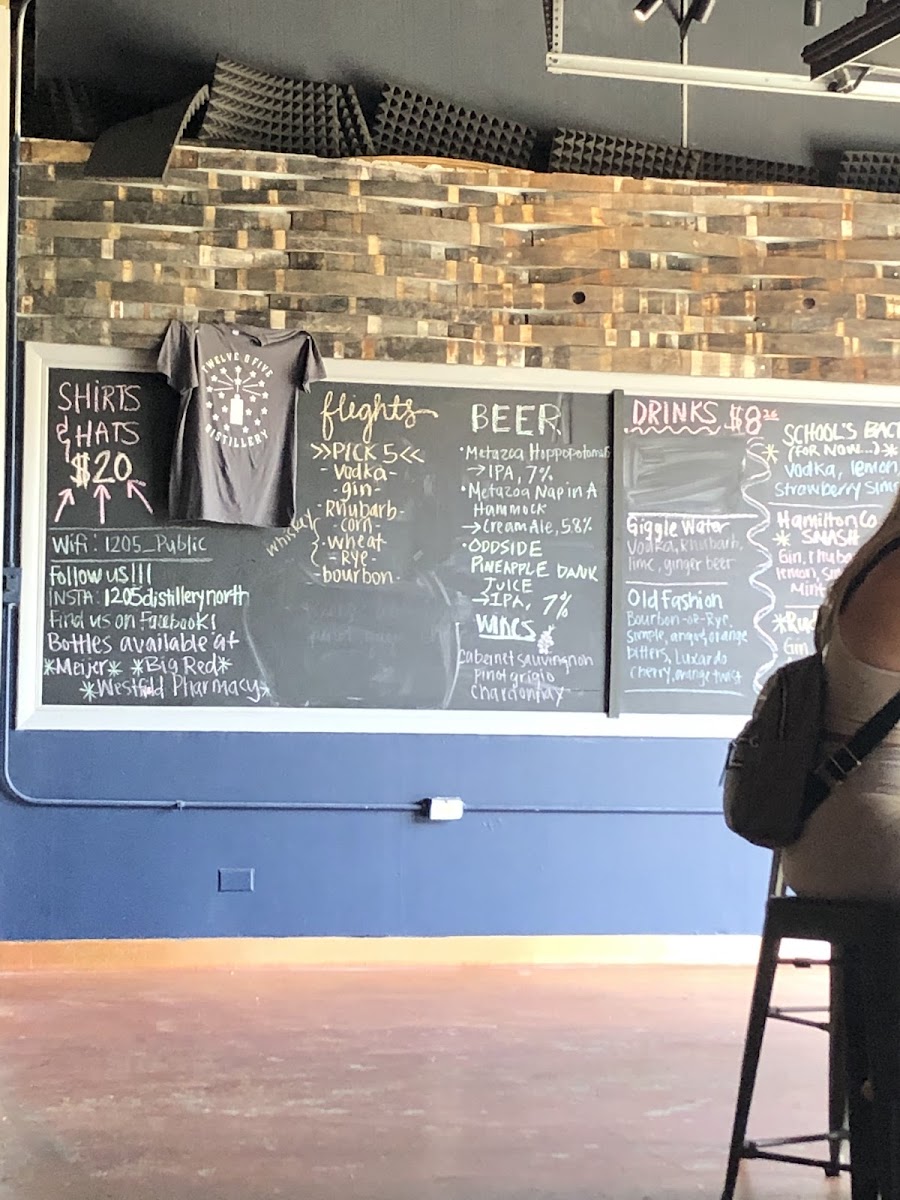 SHIRTS
& HATS
$20
Wifi: 1205_Public
Follow us!!!
INSTA: 1205distillerynorth
Find us on Facebook!
Bottles available at
*Meijer* *Big Red*
*Westfield Pharmacy*
TWELVE O FIVE
DISTILLERY
flights
>>PICK 5<<
-vodka-
-gin-
-Rhubarb-
-corn-
whiskey { -wheat-
-Rye-
-bourbon-
BEER
•Metazoa Hoppopotamus
→IPA, 7%
•Metazoa Nap in A
Hammock
→Cream Ale, 5.8%
•ODDSIDE
PINEAPPLE DANK
JUICE
→IPA, 7%
WINES
Cabernet sauvignon
pinot grigio
chardonnay
DRINKS $8
Giggle Water
Vodka, Rhubarb,
lime, ginger beer
Old Fashion
Bourbon -or- Rye,
simple, angost, orange
bitters, Luxardo
cherry, orange twist
SCHOOL'S BAC
(FOR NOW...)*
vodka, lemon,
Strawberry sim
Hamilton Co
* SMASH
Gin, rhuba
lemon, sim
mint
*Ru
Gin